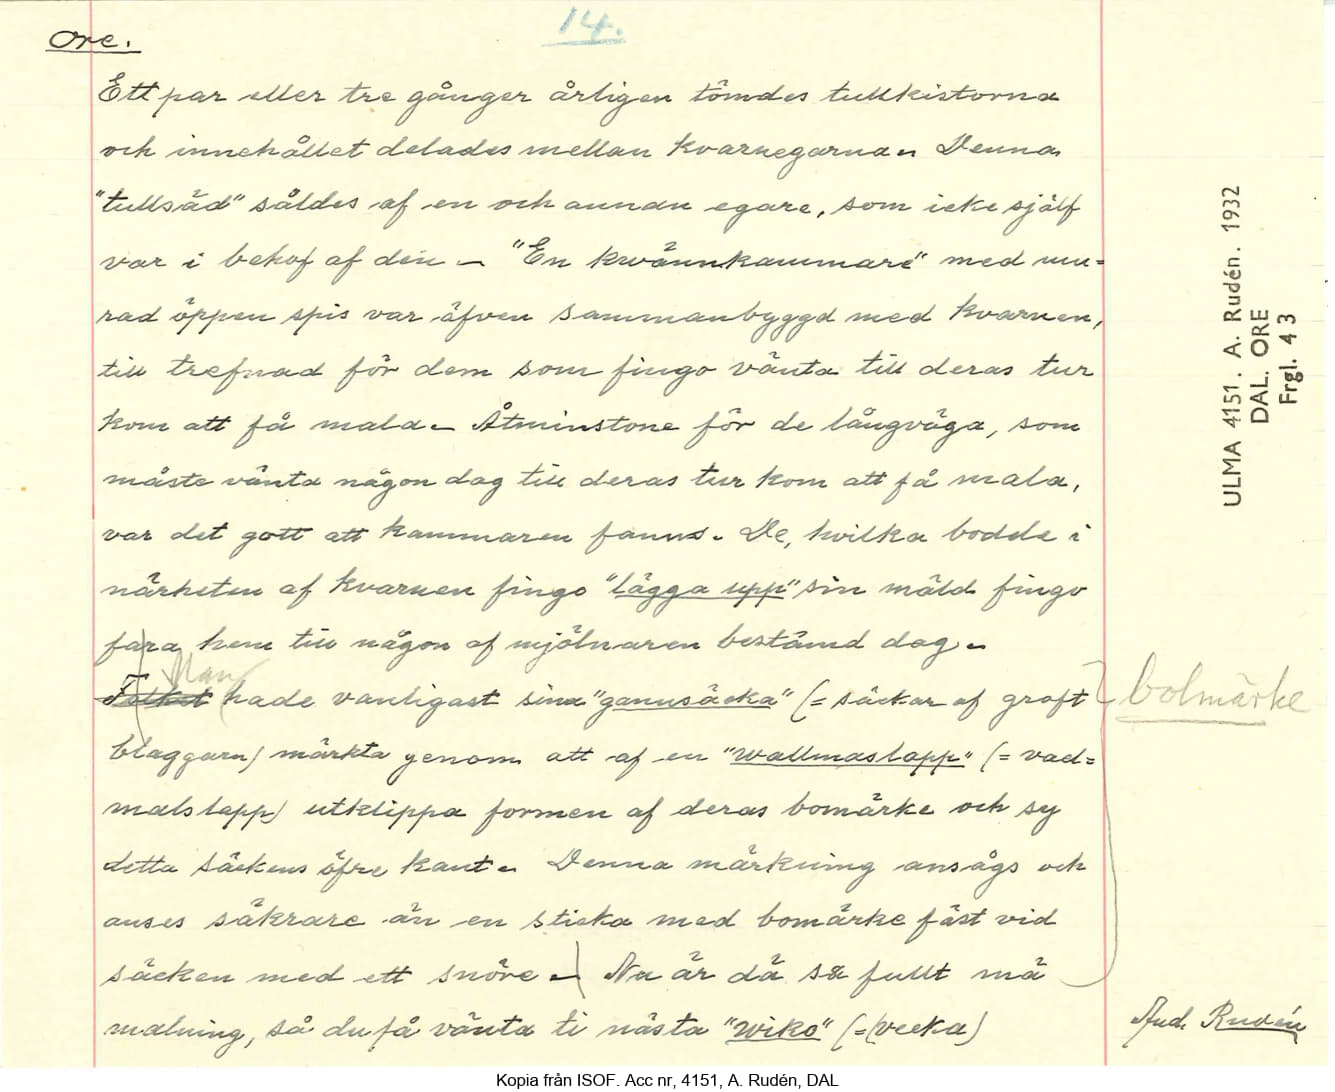 Ore.
14.
Ett par eller tre gånger årligen tömdes tullkistorna
och innehållet delades mellan kvarnegarna. Denna
"tullsäd" såldes af en och annan egare, som icke själf
var i behof af den. "En kwännkammare" med mu=
rad öppen spis var äfven sammanbyggd med kvarnen,
till trefnad för dem som fingo vänta till deras tur
kom att få mala. Åtminstone för de långväga, som
måste vänta någon dag till deras tur kom att få mala,
var det gott att kammaren fanns. De, hvilka bodde i
närheten af kvarnen fingo "lägga upp" sin mäld fingo
fara hem till någon af mjölnaren bestämd dag.
Man
Folket hade vanligast sina "gannsäcka" (= säckar af groft
blaggarn) märkta genom att af en "wallmaslapp" (= vad=
malslapp) utklippa formen af deras bomärke och sy
detta säckens öfre kant. Denna märkning ansågs och
anses säkrare än en sticka med bomärke fäst vid
säcken med ett snöre. Nu är dä sä fullt mä
malning, så du få vänta ti nästa "wiko" (=(vecka)
bolmärke
And. Rudén
ULMA 4151. A. Rudén. 1932
DAL. ORE
Frgl. 43
Kopia från ISOF. Acc nr, 4151, A. Rudén, DAL